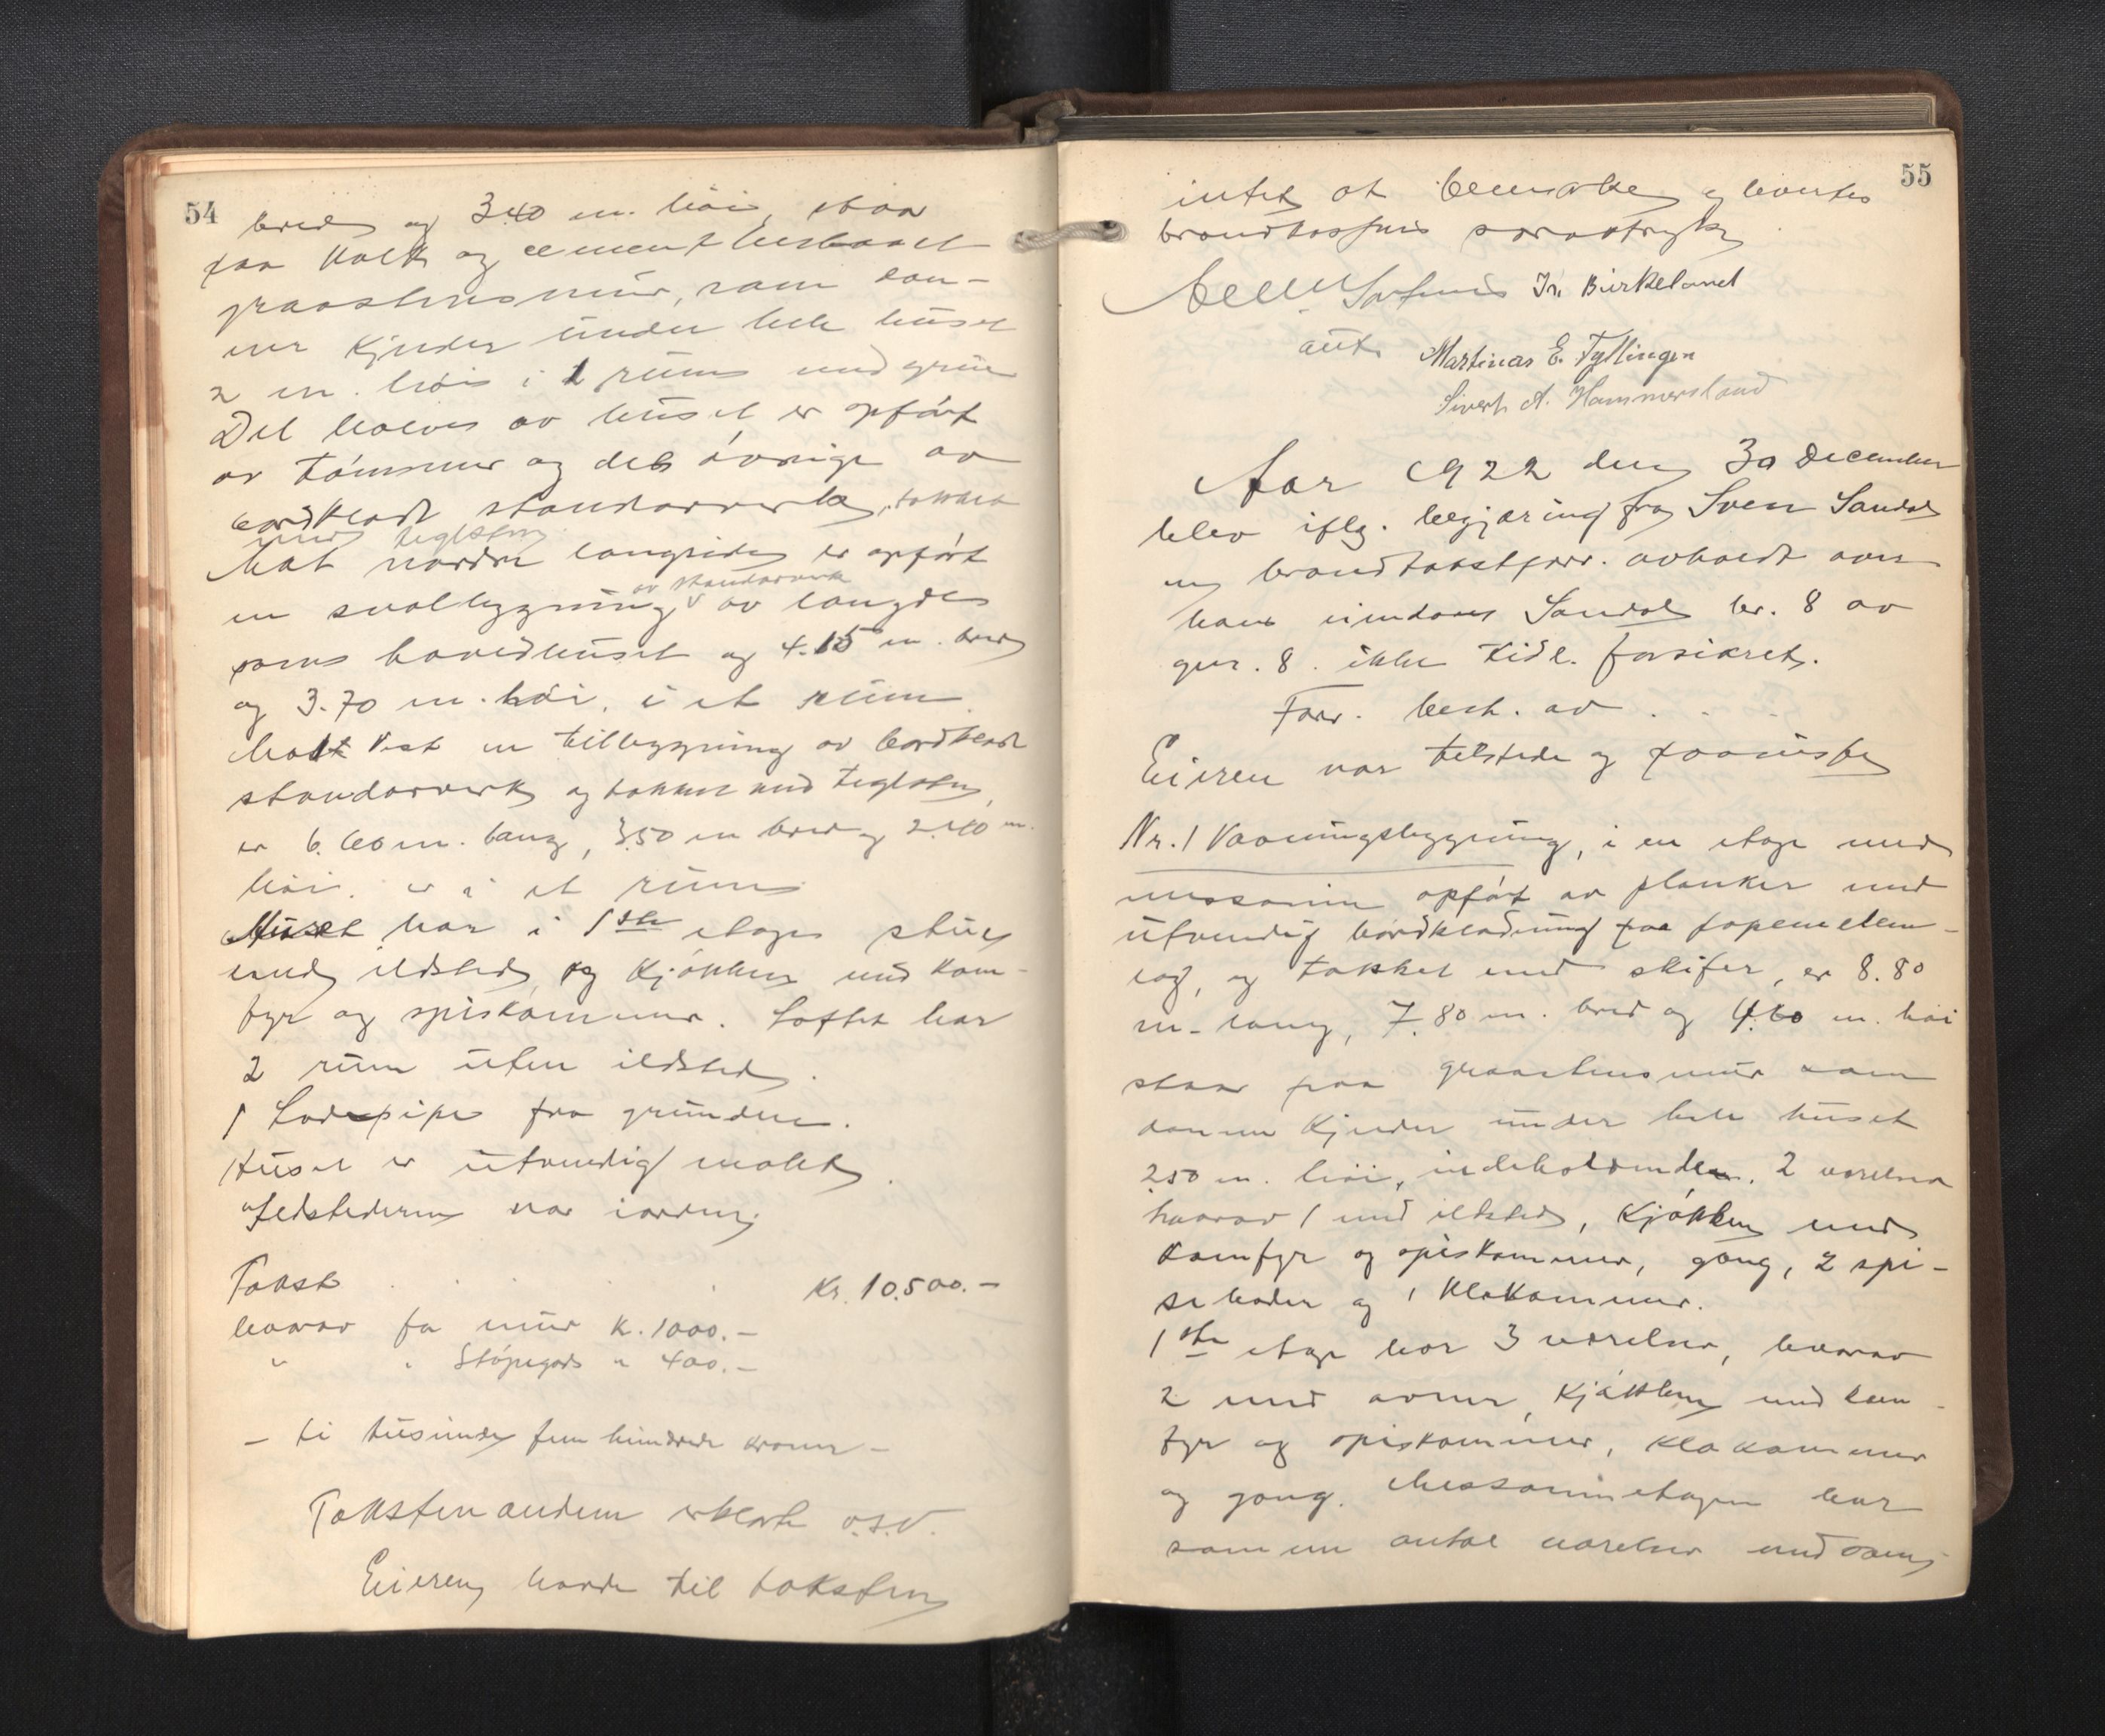 54
bred og 3.40 m. høi, staar
paa Kalk og cement husbaset
graastensmur, som dan-
ner Kjelder under hele huset
2 m. høi i 1 rum med grue
Det halve av huset er opført
av tømmer og det øvrige av
bordklædt standarverk, takket
med teglsten
Mot nordre langside er opført
en svalbygning av standarverk av længde
som hovedhuset og 4.15 m. bred
og 3.70 m. høi, i et rum.
Mot Vest en tilbygning av bordklædt
standarverk og takket med teglsten,
er 6.60 m. lang, 3.50 m bred og 2.40 m.
høi. er i et rum
Huset har i 1ste etage stue
med ildsted og Kjøkken med Kom-
fyr og spiskammer. Loftet har
2 rum uten ildsted.
1 Ladepipe fra grunden.
Huset er utvendig malet.
Ildstederne var iorden.
Takst . . . . Kr. 10.500.-
hvorav for mur K. 1000.-
" " Støpegods " 400.-
- ti tusinde fem hundrede kroner -
Takstmændene erklærte o.s.v.
Eieren havde til taksten
55
intet at bemerke og hevertes
brandkassens særavtryk
Jn. Birkeland
aut.
Martinus E. Tyllingen
Sivert A. Hammersland
Aar 1922 den 30 December
blev iflg. begjæring fra Sven Sandal
en brandtakstforr. avholdt over
hans eiendom Sandal br. 8 av
gnr. 8. ikke tidl. forsikret.
Forr. best. av . . .
Eieren var tilstede og paaviste
Nr. 1 Vaaningsbygning, i en etage med
messanin opført av planker med
utvendig bordklædning paa papemellem-
lag, og takket med skifer, er 8.80
m. lang, 7.80 m. bred og 4.60 m. høi
staar paa graastensmur som
danner Kjelder under hele huset
2.50 m. høi, indeholdende 2 værelser
hvorav 1 med ildsted, Kjøkken med
Komfyr og spiskammer, gang, 2 spi-
seboder og 1 Klækammer.
1ste etage har 3 værelser, hvorav
2 med ovner, Kjøkken med kom-
fyr og spiskammer, klækammer
og gang. Messaninetagen har
samme antal værelser med samme